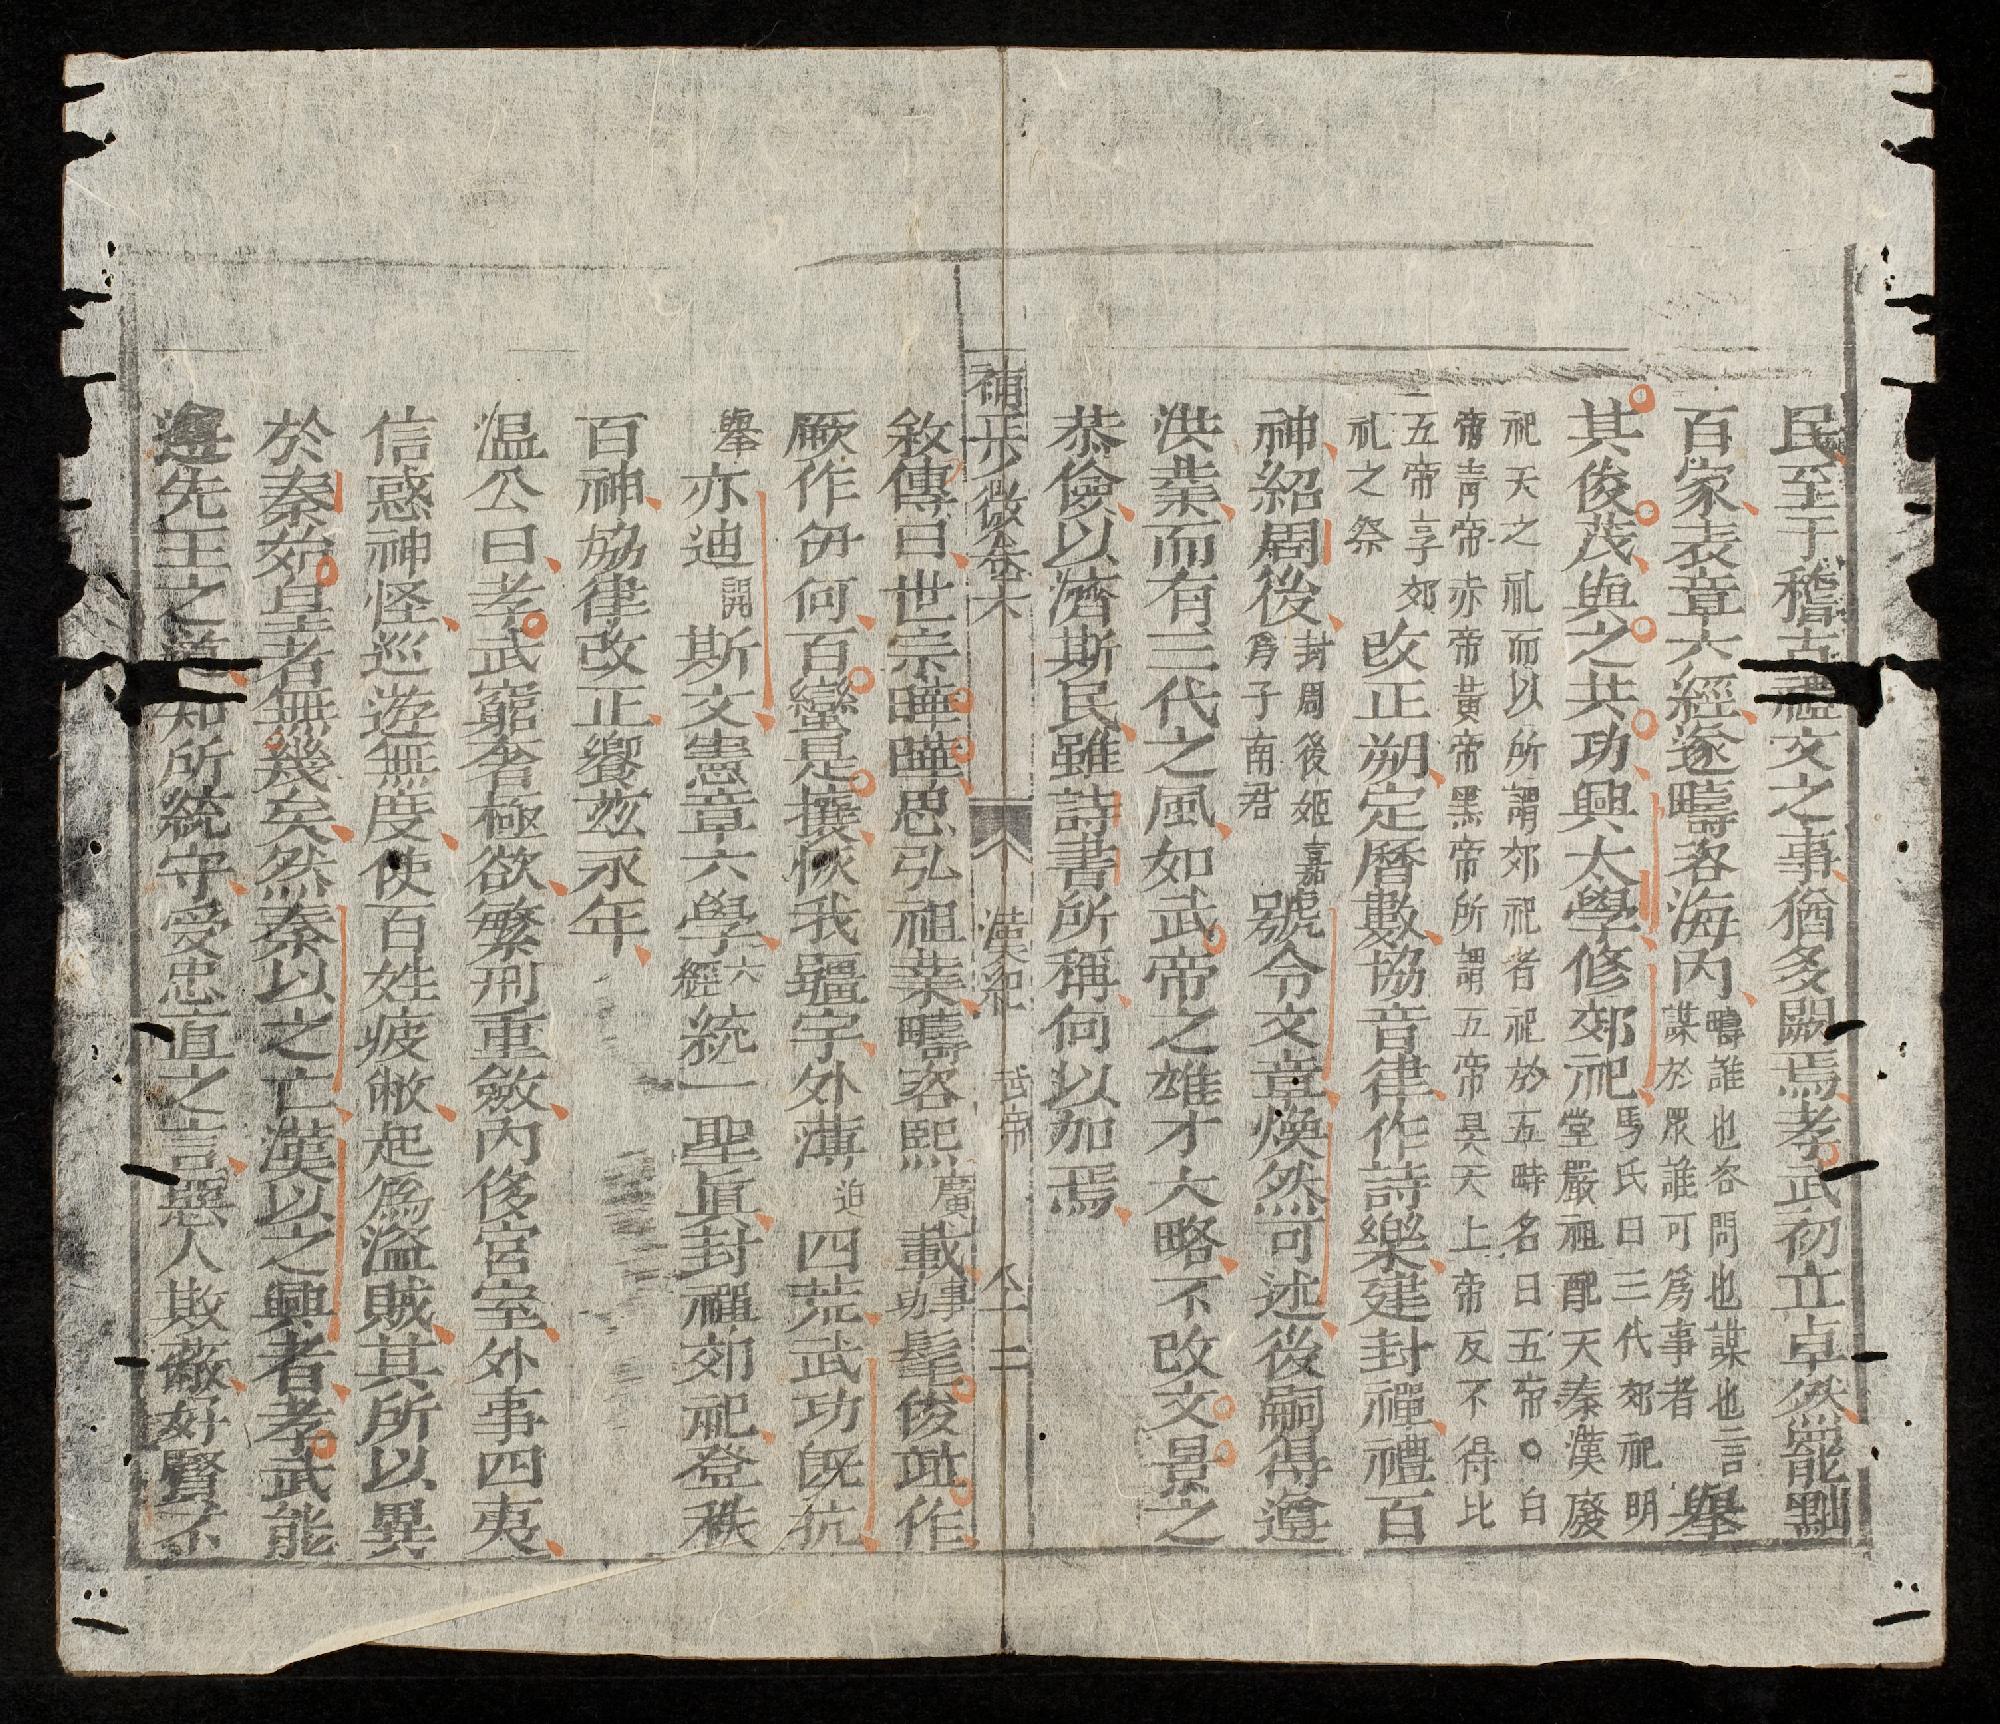 民至于稽古禮文之事猶多闕焉孝武初立卓然罷黜
百家表章六經遂疇咨海內疇誰也咨問也謀也言謀於眾誰可爲事者舉
其俊茂與之共功興太學修郊祀馬氏曰三代郊祀明堂嚴祖配天秦漢廢
祀天之礼而以所謂郊祀者祀於五畤名曰五帝○白帝青帝赤帝黃帝黑帝所謂五帝昊天上帝反不得比
五帝享郊礼之祭改正朔定曆數協音律作詩樂建封禪禮百
神紹周後封周後姬嘉爲子南君號令文章煥然可述後嗣得遵
洪業而有三代之風如武帝之雄才大略不改文景之
恭儉以濟斯民雖詩書所稱何以加焉
漢紀 武帝 二
敘傳曰世宗曄曄思弘祖業疇咨熙廣載事功髦俊竝作
厥作伊何百蠻是攘恢我疆宇外薄迫四荒武功既抗
亦迪開斯文憲章六學六經統一聖眞封禪郊祀登秩舉
百神協律改正饗玆永年
温公曰孝武窮奢極欲繁刑重斂內侈宮室外事四夷
信惑神怪巡遊無度使百姓疲敝起爲盜賊其所以異
於秦始皇者無幾矣然秦以之亡漢以之興者孝武能
遵先王之道知所統守受忠直之言惡人欺蔽好賢不